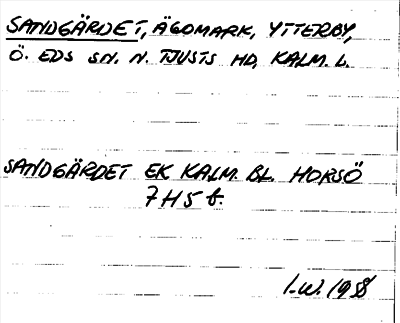 SANDGÄRDET, ÄGOMARK, YTTERBY,
Ö. EDS SN. N. TJUSTS HD, KALM. L.
SANDGÄRDET EK KALM. BL. HORSÖ
7H5 f.
I.W.